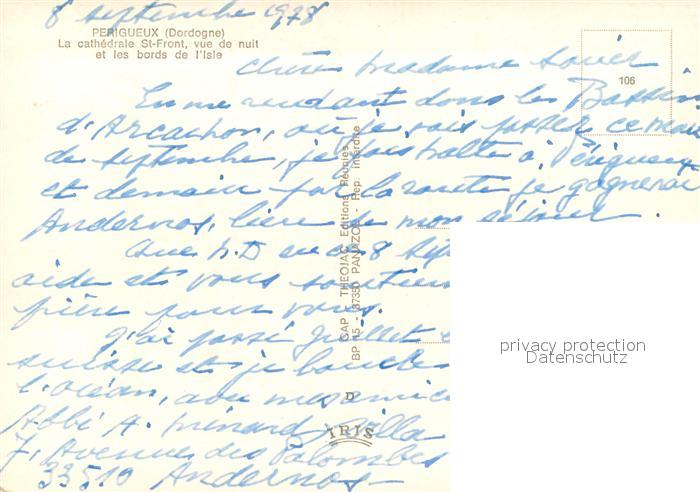 8 septembre 1978
PERIGUEUX (Dordogne)
La cathédrale St-Front, vue de nuit
et les bords de l'Isle
106
Chère Madame
En me rendant dans le Bassin
d'Arcachon, où je vais passer ce mois
de septembre, je fais halte à Périgueux
et demain par la route je gagnerai
Andernos, lieu de mon séjour.
Que N.D en ce 8 Sep
aide et vous soutien
prie pour vous.
J'ai passé Juillet
suisse et je boucle
l'océan, avec mes amic
Abbé A. Ménard Villa
7, Avenue des Palombes
33510 Andernos
CAP THEOJAC Editions Réunies
BP 15 - 87350 PANAZOL - Rep. interdite
D
IRIS
privacy protection
Datenschutz